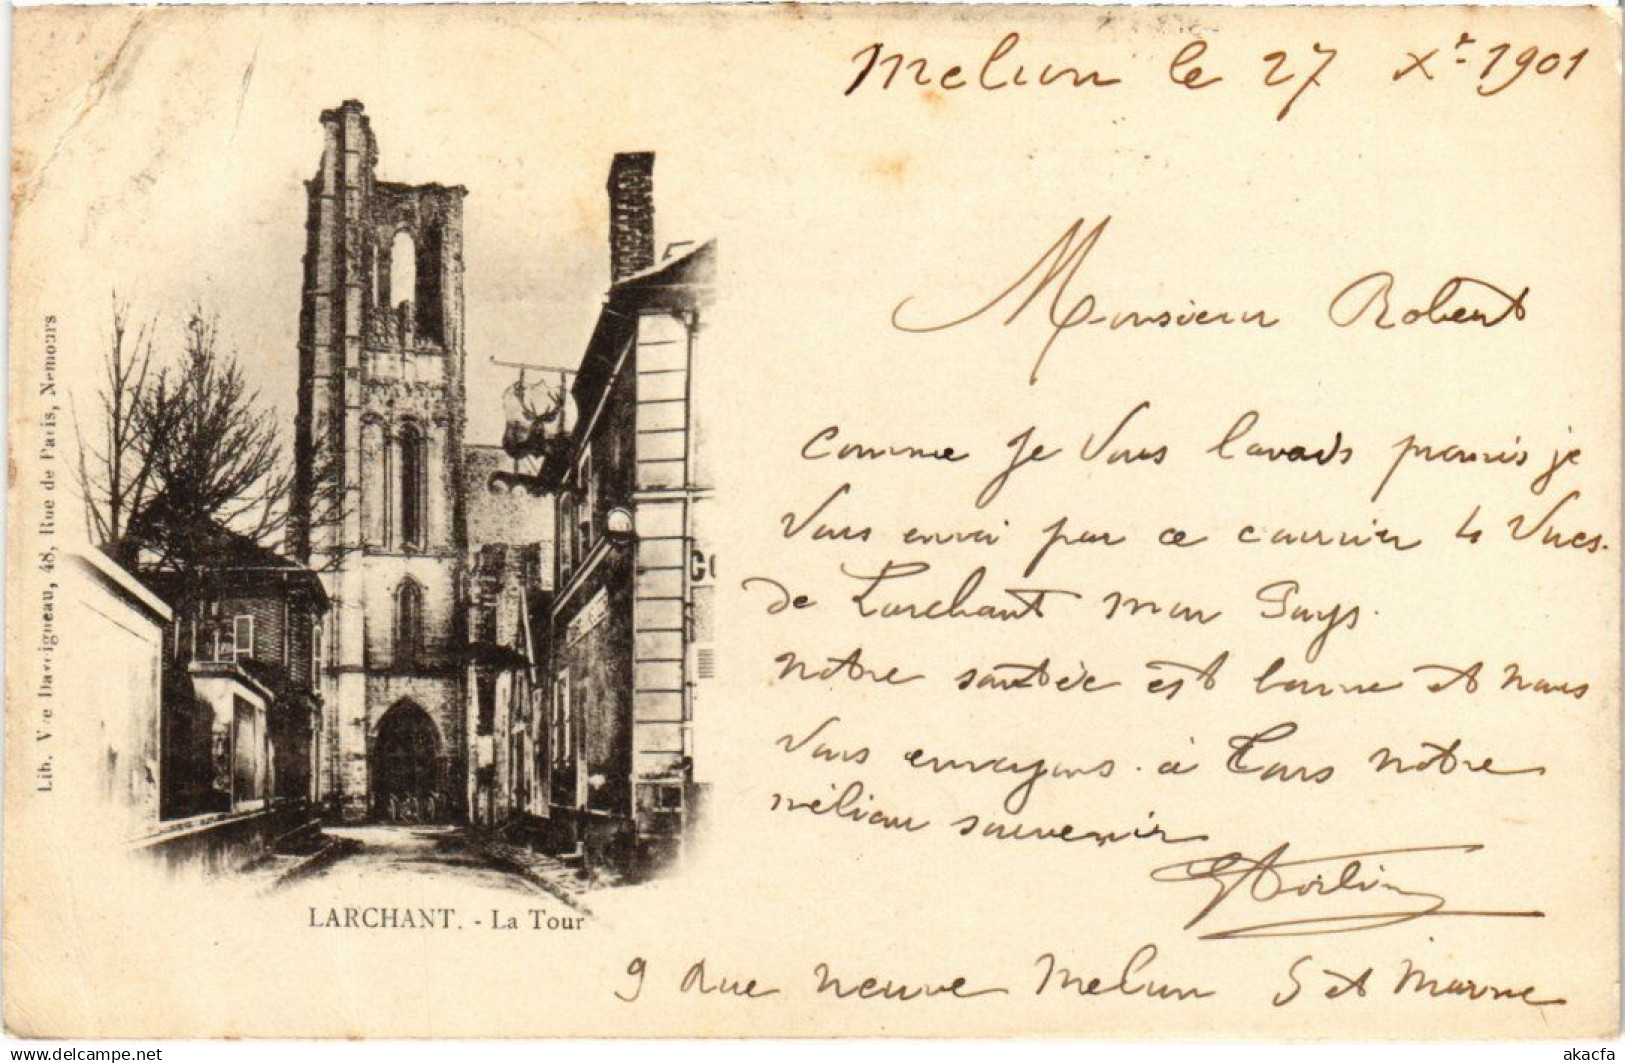 Melun le 27 Xr 1901
Monsieur Robert
comme je vous lavais promis je
vous envoi par ce courrier 4 vues.
de Larchant mon Pays.
notre santée est bonne et nous
vous envoyons à tous notre
mélieur souvenir
9 Rue neuve Melun S et Marne
LARCHANT. - La Tour
Lib. Vve Daveigneau, 48, Rue de Paris, Nemours
CO
www.delcampe.net
akacfa